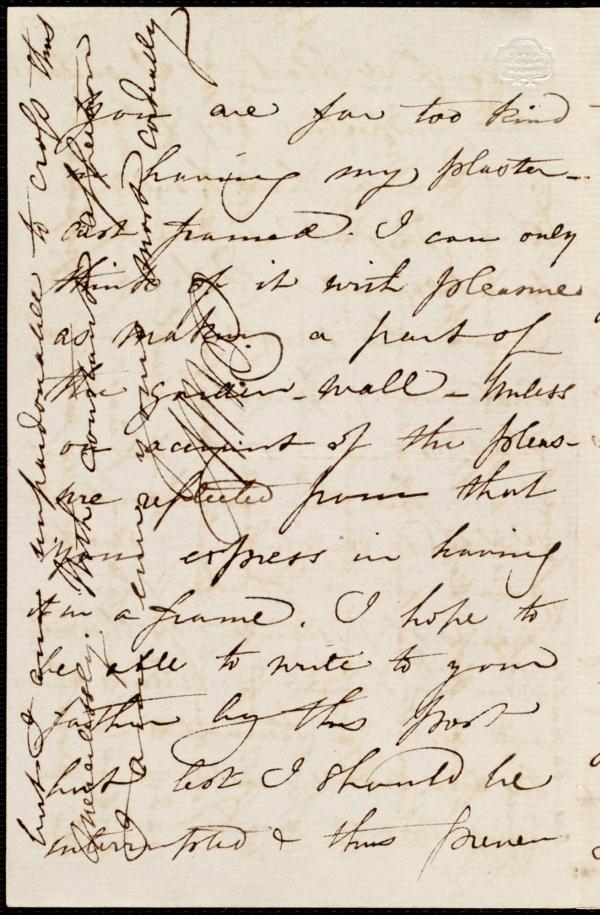 You are far too kind
in having my plaster-
cast framed. I can only
think of it with pleasure
as making a part of
the garden-wall - Unless
on account of the pleas-
ure reflected from that
you express in having
it in a frame. I hope to
be able to write to your
father by this post
but lest I should be
interrupted & thus preven
but I am unpardonable to cross thus
needlessly. With constant affection
I am ever yours most cordially